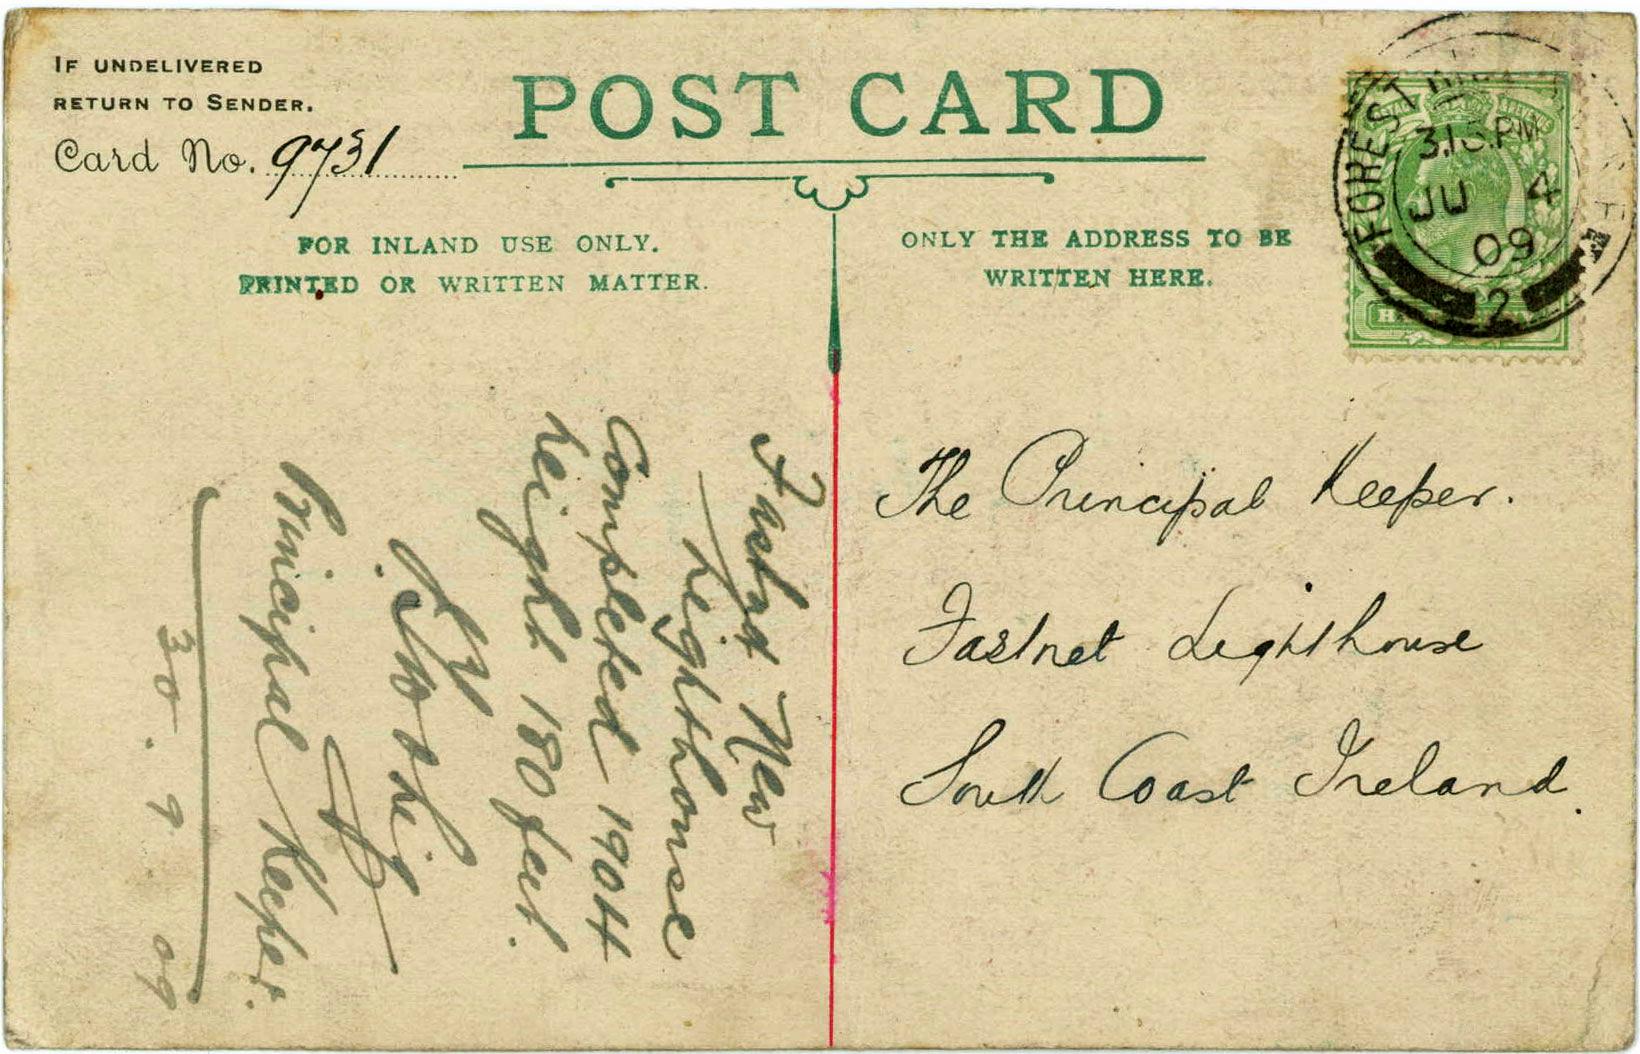 IF UNDELIVERED
RETURN TO SENDER.
Card No. 9731
POST CARD
FOR INLAND USE ONLY.
PRINTED OR WRITTEN MATTER.
ONLY THE ADDRESS TO BE
WRITTEN HERE.
FOREST
3.15 PM
JU 4
09
2
The Principal Keeper.
Fastnet Lighthouse
South Coast Ireland.
Fastnet New
Lighthouse
Completed 1904
height 180 feet.
Principal Keeper.
30.9.09